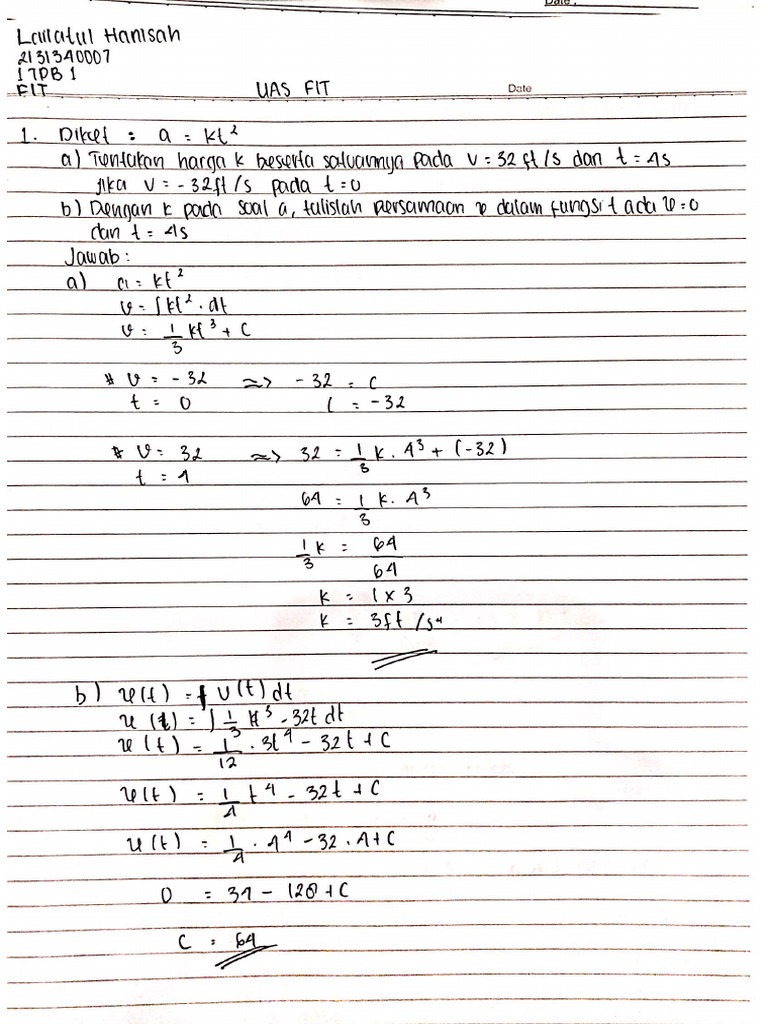 Date :
Lailatul Hanisah
2131340007
1TPB1
FIT UAS FIT Date
1. Diket : a = kt²
a) Tentukan harga k beserta satuannya pada v = 32 ft/s dan t = 4s
jika v = -32ft/s pada t = 0
b) Dengan k pada soal a, tulislah persamaan x dalam fungsi t ada x = 0
dan t = 4s
Jawab :
a) a = kt²
v = ∫kt² . dt
v = 1/3 kt³ + C
* v = -32 => -32 = C
t = 0 C = -32
* v = 32 => 32 = 1/3 k . 4³ + (-32)
t = 4
64 = 1/3 k . 4³
1/3 k = 64/64
k = 1 x 3
k = 3ft/s⁴
b) x(t) = ∫ v(t) dt
x(t) = ∫ 1/3 kt³ - 32t dt
x(t) = 1/12 . 3t⁴ - 32t + C
x(t) = 1/4 t⁴ - 32t + C
x(t) = 1/4 . 4⁴ - 32 . 4 + C
0 = 34 - 128 + C
C = 64